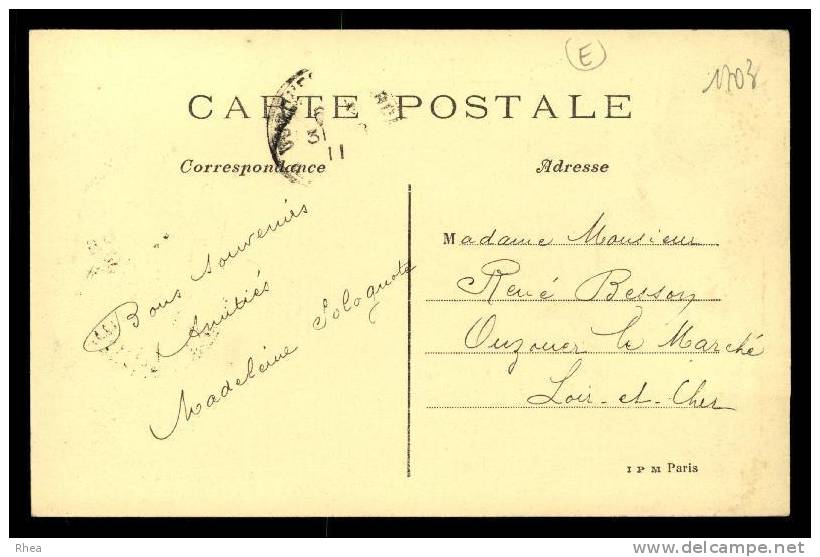 E
1703
CARTE POSTALE
31
11
Correspondance
Adresse
Bons souvenirs
Amitiés
Madeleine Solognote
Madame Monsieur
René Besson
Ouzouer le Marché
Loir-et-Cher
I P M Paris
Rhea
www.delcampe.net